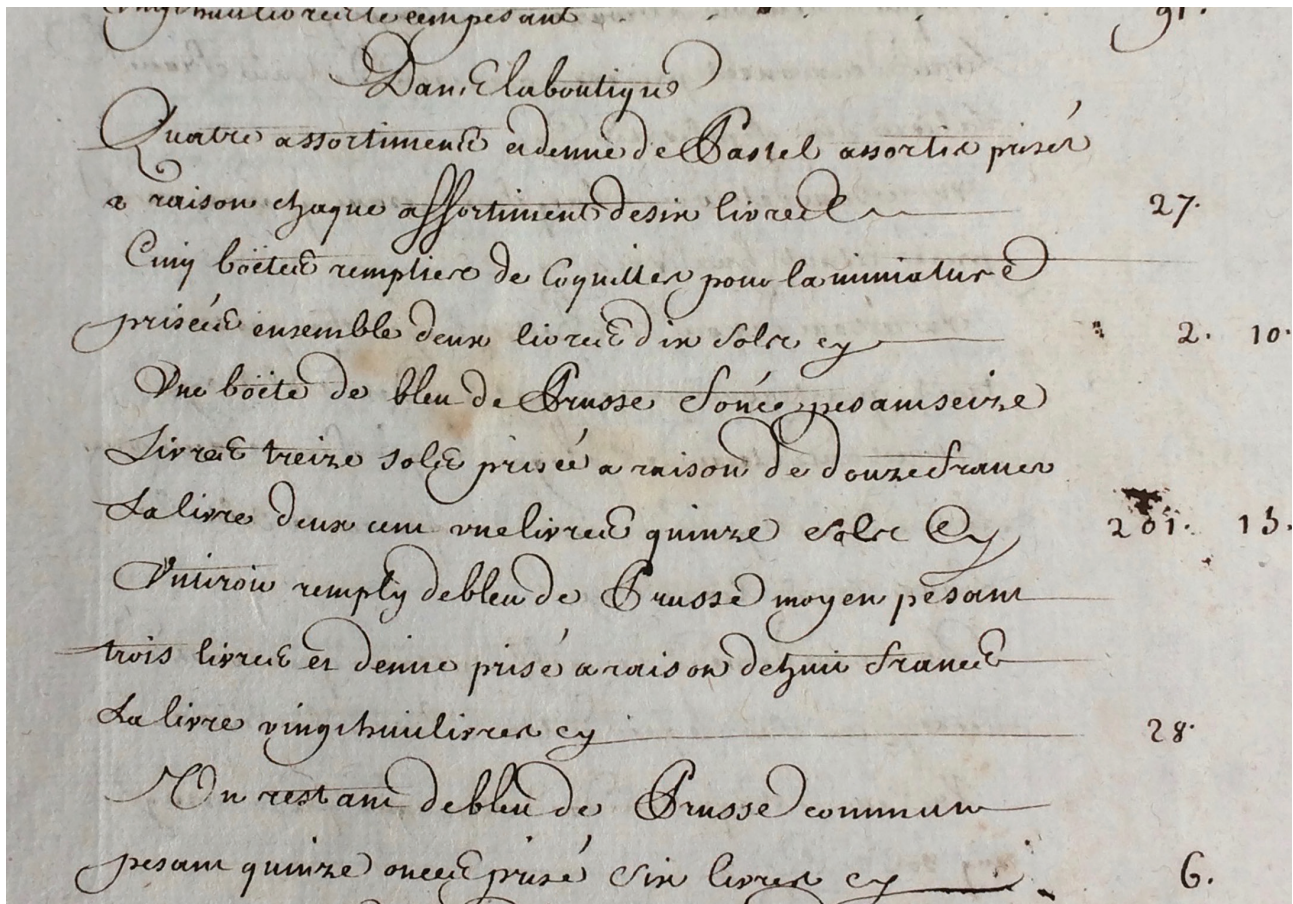 vingt huit livres le cem pesant 91.
Dans la boutique
Quatre assortiments et demie de Pastel assortis prisés
a raison chaque assortiment de six livres 27.
Cinq boëtes remplies de Coquilles pour la miniature
prisées ensemble deux livres dix sols cy 2. 10.
Une boëte de bleu de Prusse foncé pesant seize
Livres treize sols prisée a raison de douze francs
La livre deux cent une livres quinze sols Cy 201. 15.
Un tiroir remply de bleu de Prusse moyen pesant
trois livres et demie prisé a raison de huit francs
La livre vingt huit livres cy 28.
Un restant de bleu de Prusse commun
pesant quinze onces prisé six livres cy 6.